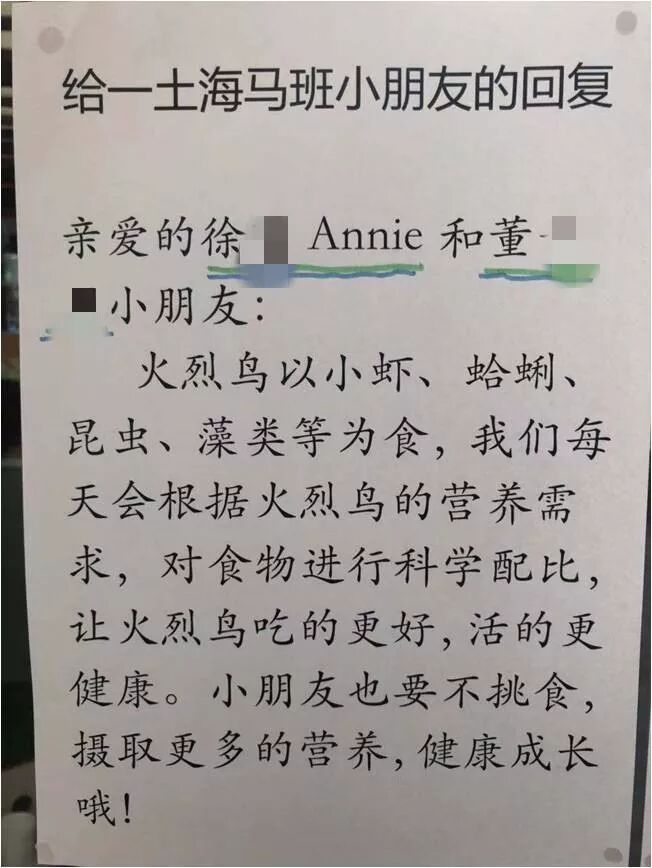 给一土海马班小朋友的回复
亲爱的徐 Annie 和董
小朋友：
火烈鸟以小虾、蛤蜊、
昆虫、藻类等为食，我们每
天会根据火烈鸟的营养需
求，对食物进行科学配比，
让火烈鸟吃的更好，活的更
健康。小朋友也要不挑食，
摄取更多的营养，健康成长
哦！